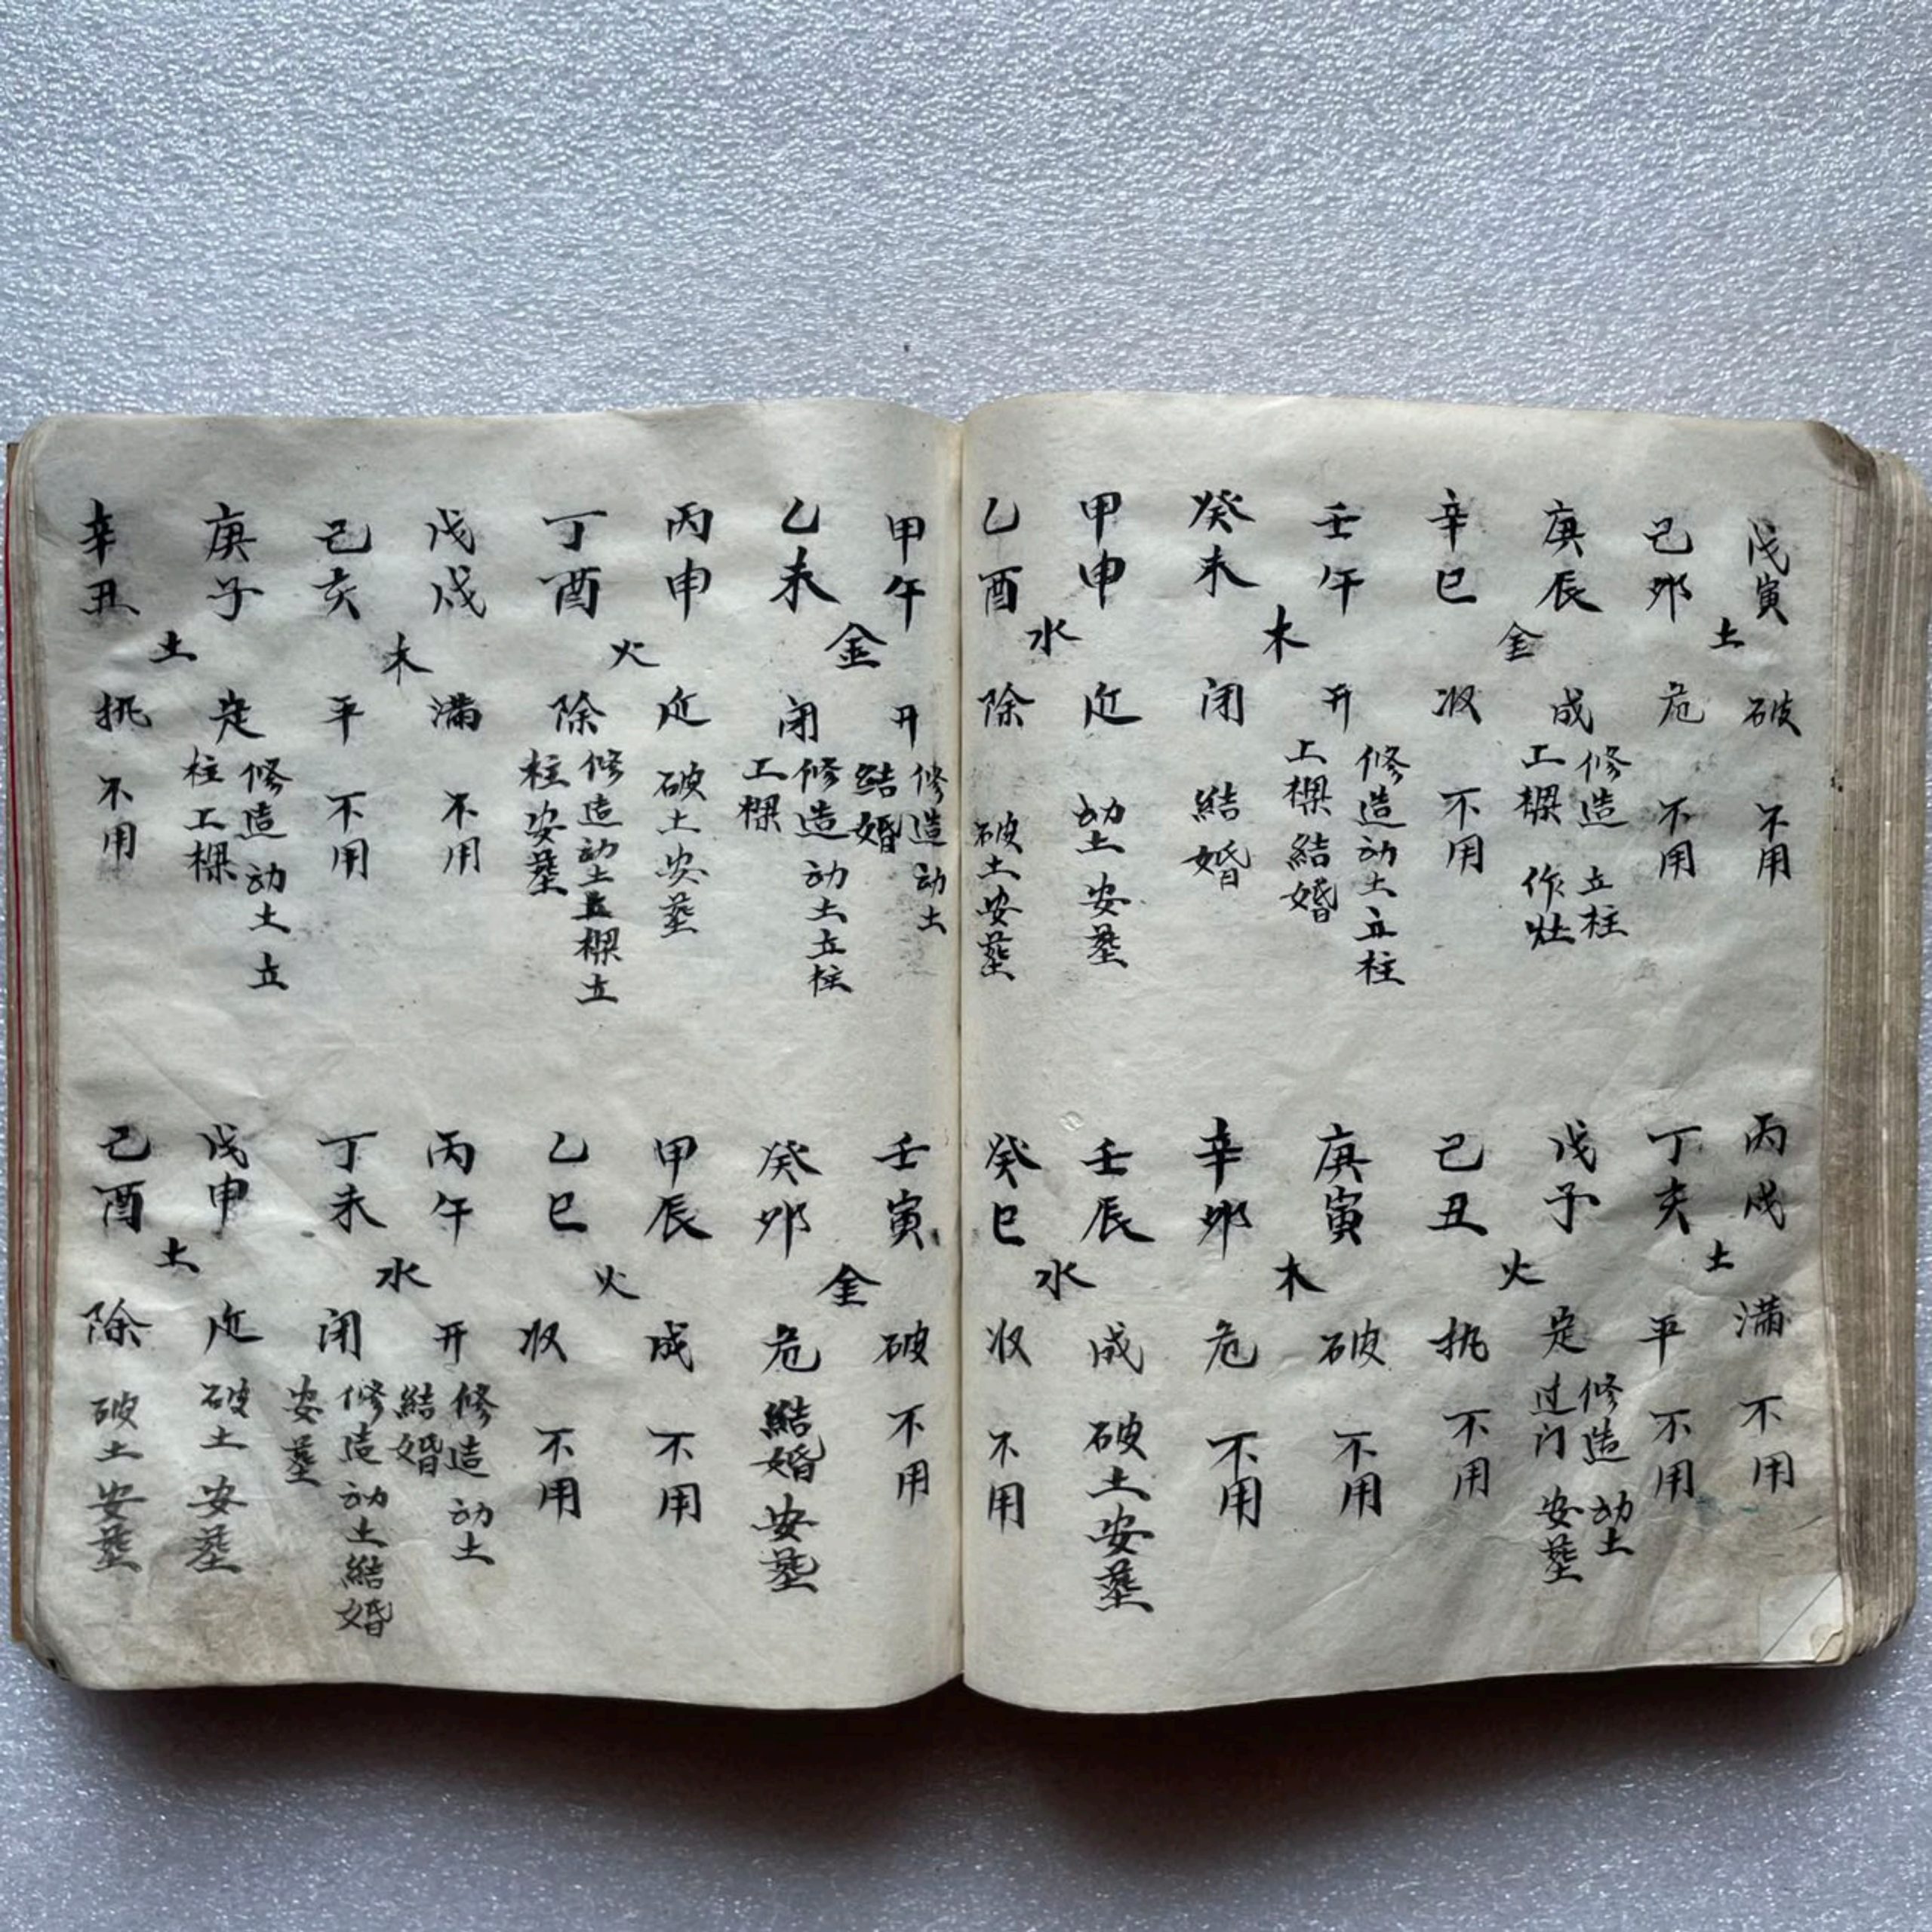 戊寅 破 不用
土
己卯 危 不用
庚辰 成 修造 立柱
上樑 作灶
金
辛巳 収 不用
壬午 开 修造动土立柱
上樑結婚
木
癸未 闭 結婚
甲申 建 动土安塟
水
乙酉 除 破土安塟
丙戌 满 不用
土
丁亥 平 不用
戊子 定 修造 动土
过门 安塟
火
己丑 执 不用
庚寅 破 不用
木
辛卯 危 不用
壬辰 成 破土安塟
水
癸巳 収 不用
甲午 开 修造动土
結婚
金
乙未 闭 修造动土立柱
上樑
丙申 建 破土安塟
火
丁酉 除 修造动土上樑立
柱安塟
戊戌 满 不用
木
己亥 平 不用
庚子 定 修造动土立
柱上樑
土
辛丑 执 不用
壬寅 破 不用
金
癸卯 危 結婚安塟
甲辰 成 不用
火
乙巳 収 不用
丙午 开 修造动土
結婚
水
丁未 闭 修造动土結婚
安塟
戊申 建 破土安塟
土
己酉 除 破土安塟